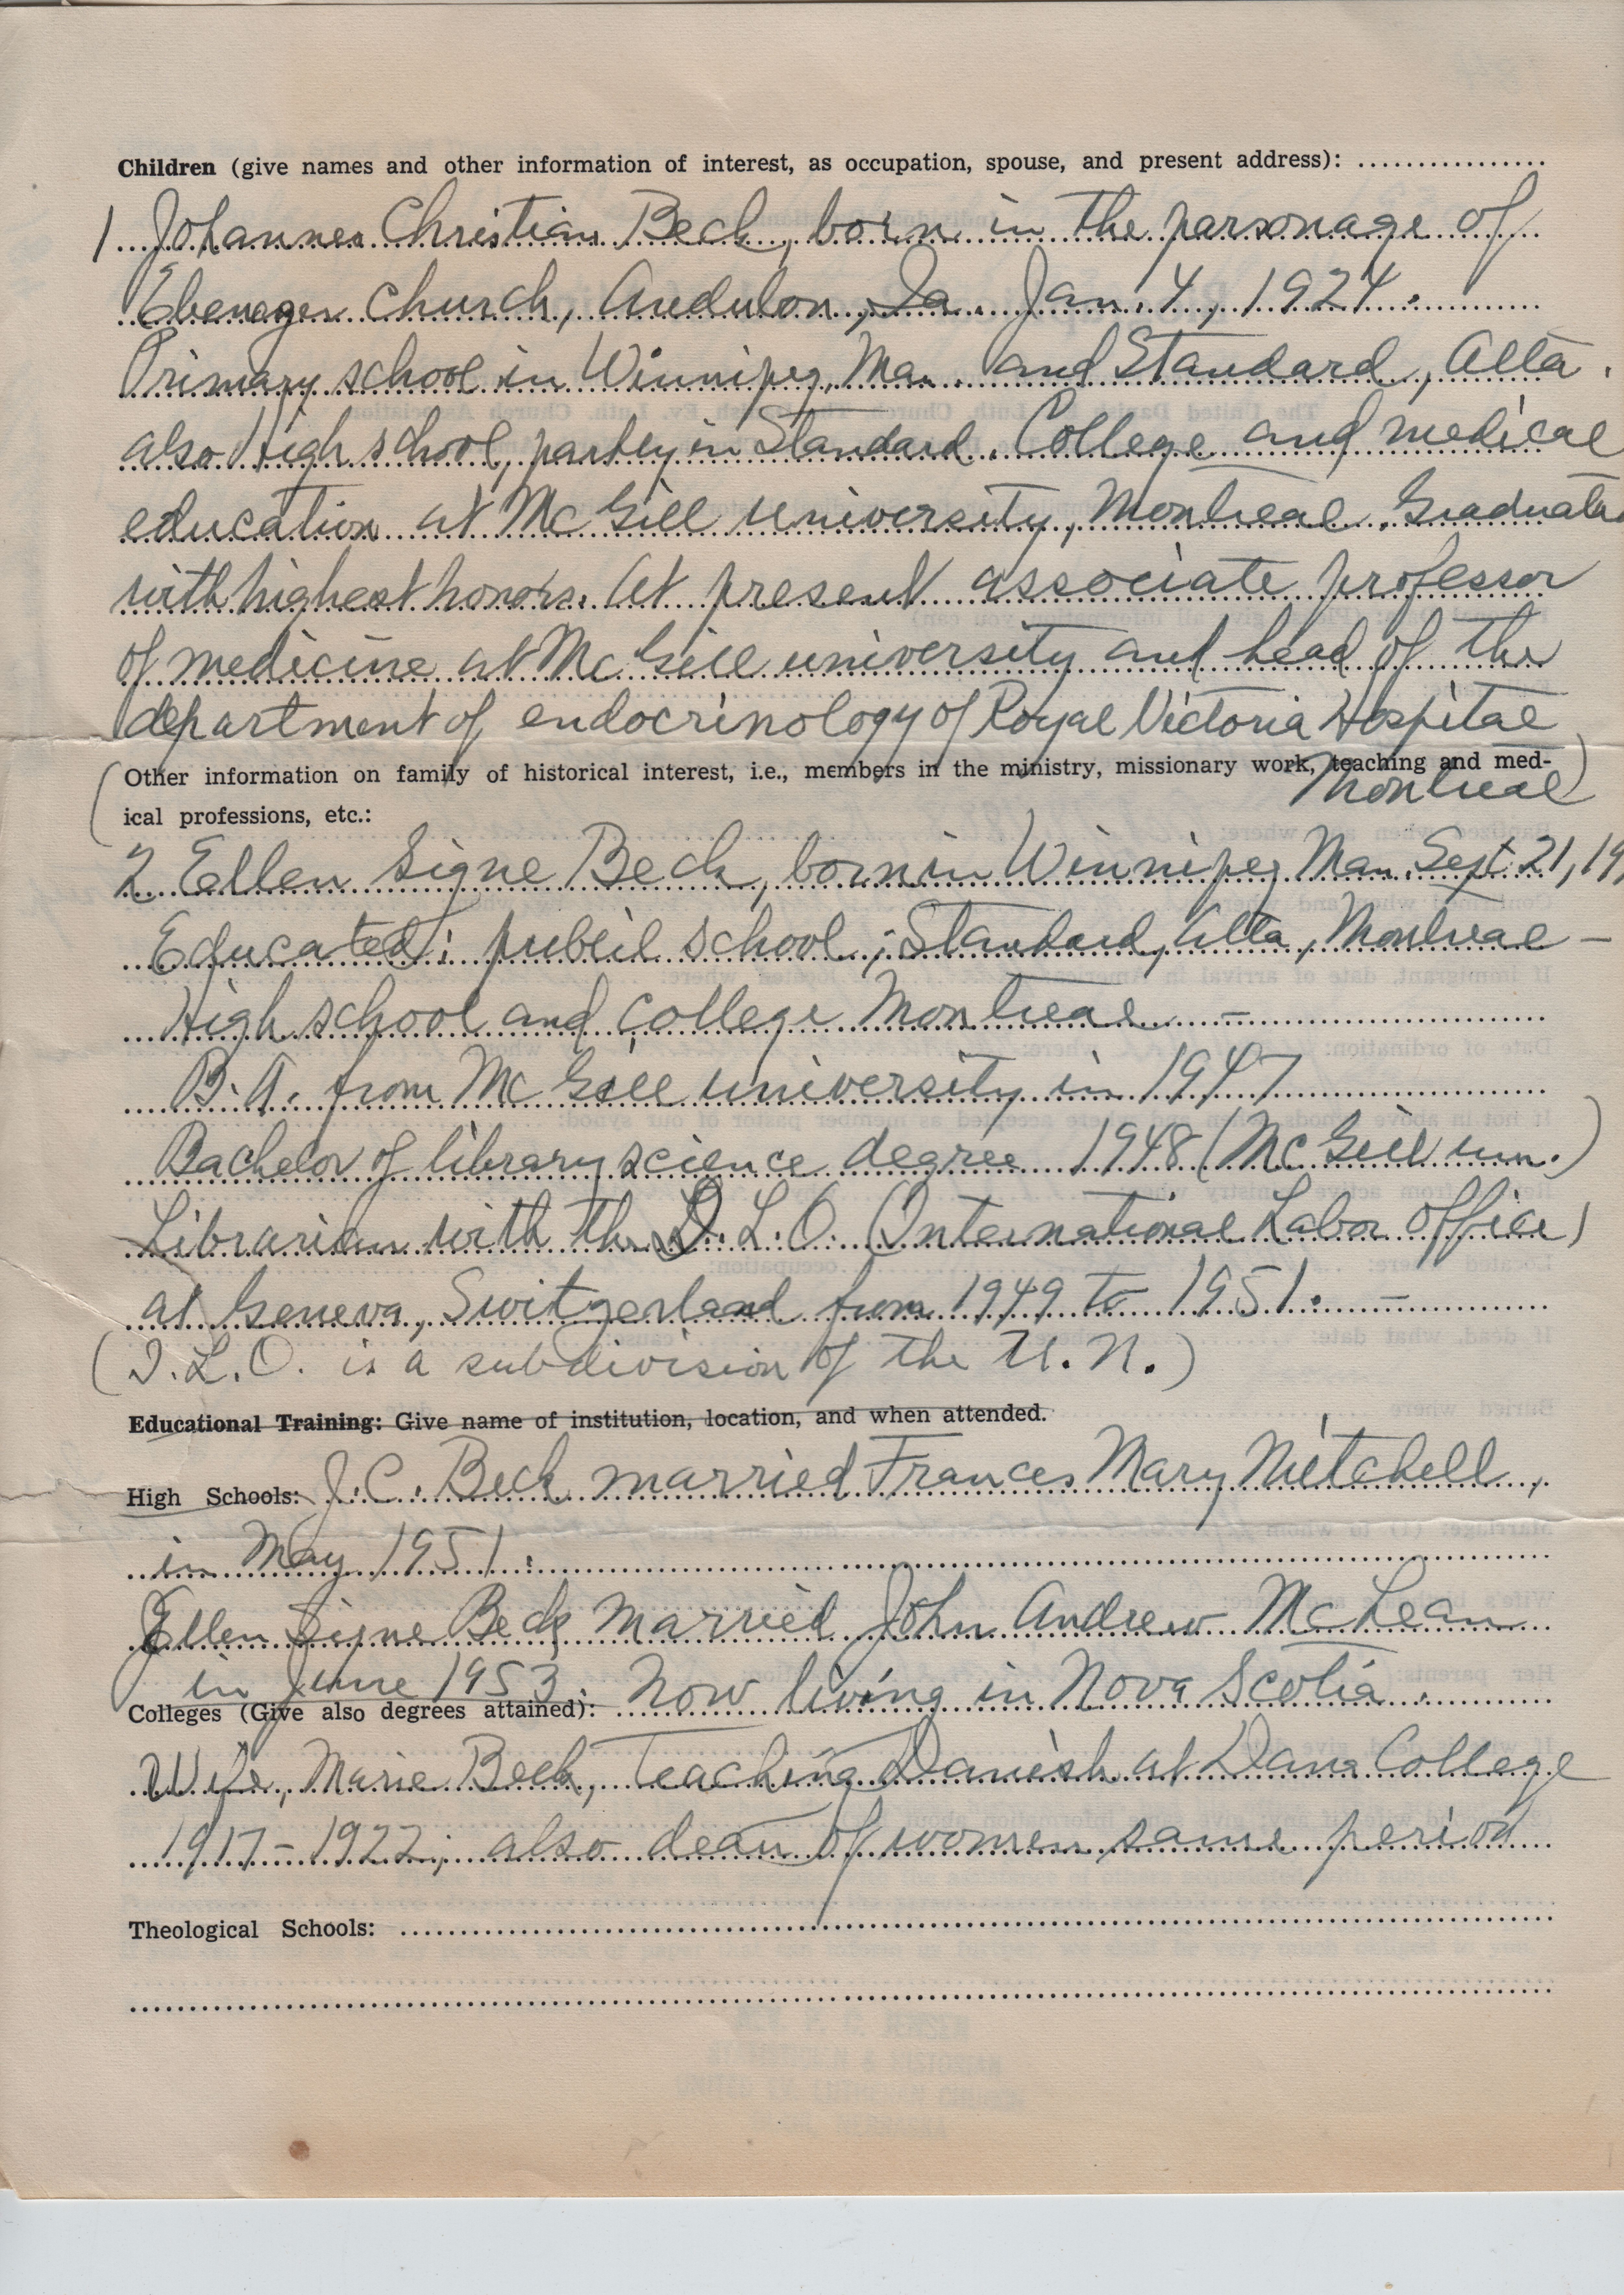 Children (give names and other information of interest, as occupation, spouse, and present address):
1 Johannes Christian Beck, born in the parsonage of
Ebenezer church, Audubon, Ia. Jan. 4, 1924.
Primary school in Winnipeg, Man. and Standard, Alta.
also High school, partly in Standard. College and medical
education at McGill university, Montreal. Graduated
with highest honors. At present associate professor
of medicine at McGill university and head of the
department of endocrinology of Royal Victoria Hospital
Montreal
(Other information on family of historical interest, i.e., members in the ministry, missionary work, teaching and med-
ical professions, etc.:)
2 Ellen Signe Beck, born in Winnipeg Man. Sept. 21, 19
Educated: public school; Standard, Alta, Montreal –
High school and college Montreal –
B.A. from McGill university in 1947
Bachelor of library science degree 1948 (McGill un.)
Librarian with the I.L.O. (International Labor Office)
at Geneva, Switzerland from 1949 to 1951. –
(I.L.O. is a subdivision of the U.N.)
Educational Training: Give name of institution, location, and when attended.
High Schools: J.C. Beck married Frances Mary Mitchell,
in May 1951.
Ellen Signe Beck married John Andrew McLean
in June 1953. Now living in Nova Scotia.
Colleges (Give also degrees attained):
Wife, Marie Beck, Teaching Danish at Dana College
1917 – 1922; also dean of women same period
Theological Schools: